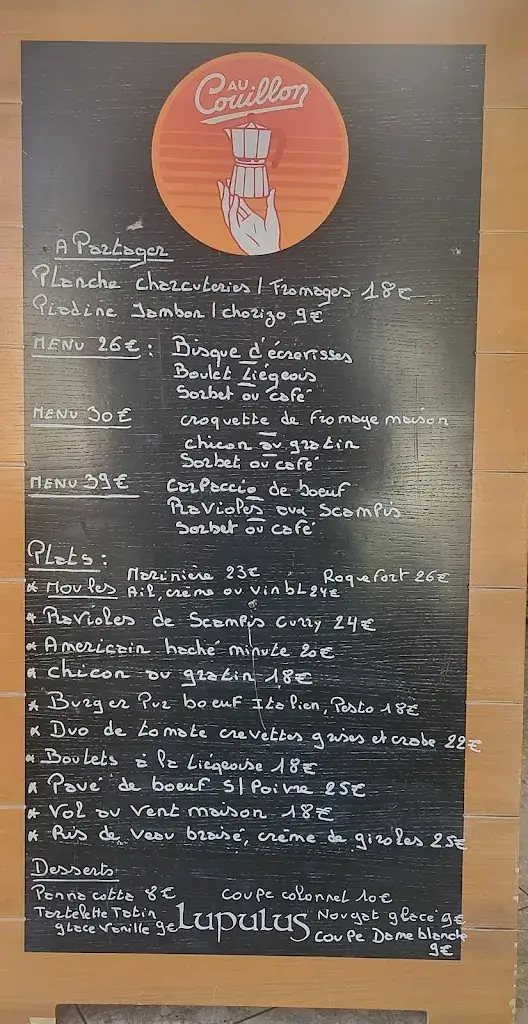 AU
Couillon
A Partager
Planche charcuteries / Fromages 18€
Piadine Jambon / chorizo 9€
MENU 26€ : Bisque d'écrevisses
Boulet Liégeois
Sorbet ou café
MENU 30€ croquette de Fromage maison
chicon au gratin
Sorbet ou café
MENU 39€ carpaccio de boeuf
Ravioles aux Scampis
Sorbet ou café
Plats :
* Moules Marinière 23€ Roquefort 26€
Ail, crème ou Vin bl 24€
* Ravioles de Scampis Curry 24€
* Americain haché minute 20€
* chicon au gratin 18€
* Burger Pur boeuf Italien, Pesto 18€
* Duo de tomate crevettes grises et crabe 22€
* Boulets à la Liégeoise 18€
* Pavé de boeuf S/ Poivre 25€
* Vol au Vent maison 18€
* Ris de Veau braisé, crème de giroles 25€
Desserts
Panna cotta 8€ Coupe colonnel 10€
Tartelette Tatin Nougat glacé 9€
glace Vanille 9€ Lupulus Coupe Dame blanche
9€